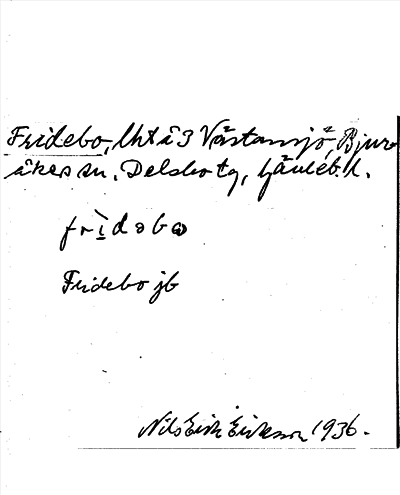 Fridebo, lht å 3 Västansjö, Bjur-
åkers sn, Delsbo tg, Gävleb. l.
frìdəbω
Fridebo jb
Nils Erik Eriksson 1936.